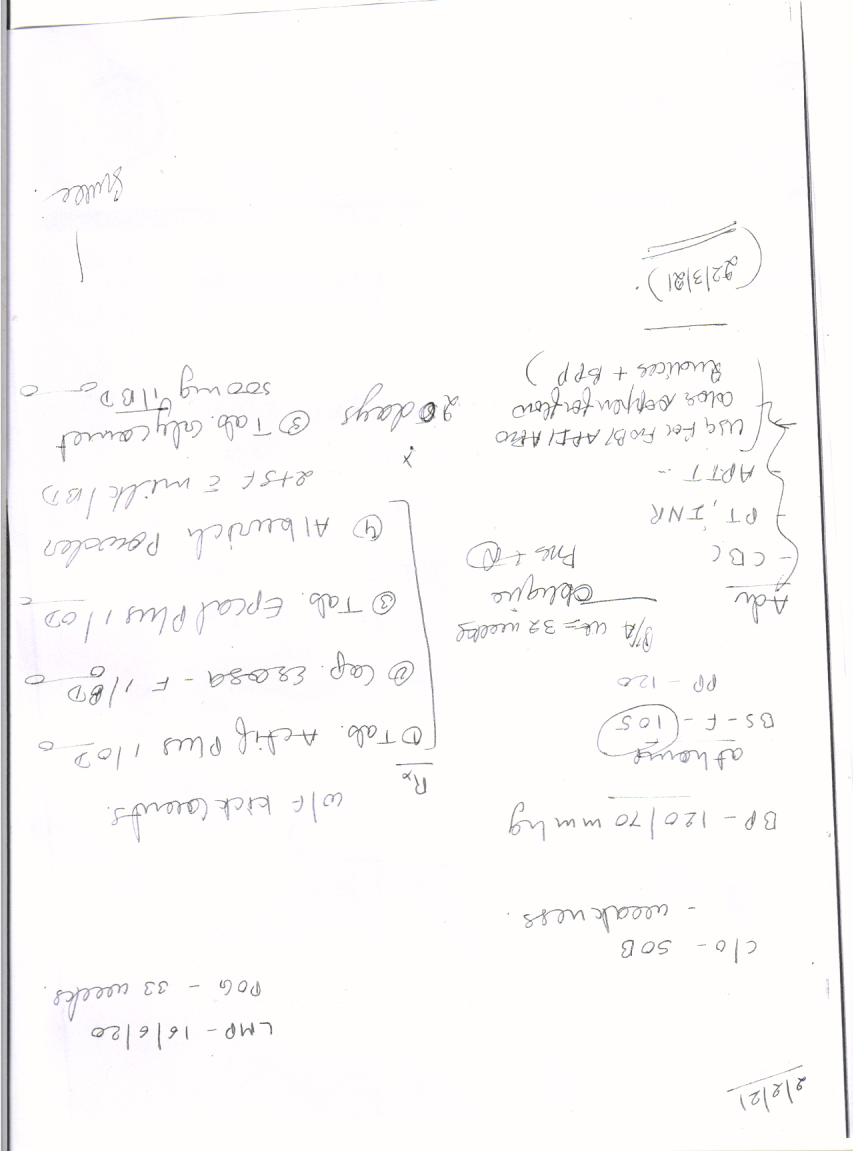 2/2/21
LMP - 16/6/20
POG - 33 weeks.
C/o - SOB
- weakness.
BP - 120/70 mmHg
at home
BS - F - 105
PP - 120
P/A ut = 32 weeks
oblique
FHS + (N)
Adv
- CBC
- PT, INR
- APTT
- USG for FWB/AFI/
color doppler for flow
indices + BPP)
(22/3/21).
w/f kick counts.
Rx
① Tab. Actif Plus 1/OD
② Cap. Exosa - F 1/BD
③ Tab. Epcal Plus 1/OD
④ Alburich Powder
2tsf c̄ milk/BD
x
20 days
③ Tab. Glycomet
500mg 1/BD